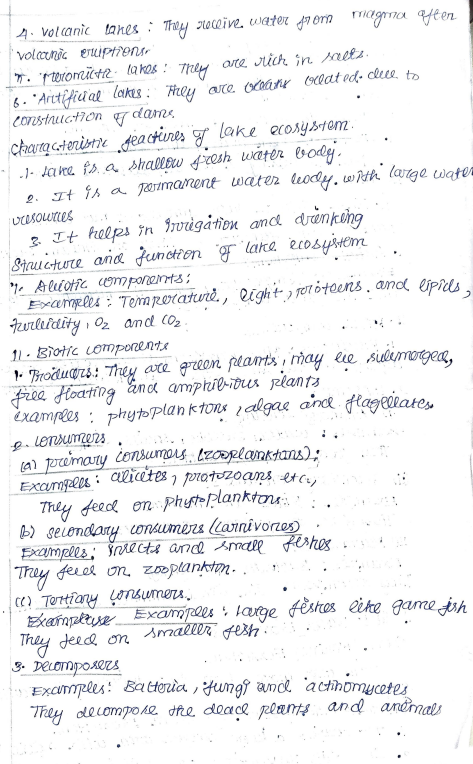 4. volcanic lakes : They receive water from magma after
volcanic eruptions.
5. Meromictic lakes : They are rich in salts.
6. Artificial lakes : They are created due to
construction of dams.
Characteristic feactures of lake ecosystem.
1. Lake is a shallow fresh water body.
2. It is a permanent water body. with large water
resources
3. It helps in Irrigation and drinking
Structure and function of lake ecosystem
I. Abiotic components:
Examples : Temperature, light, proteins. and lipids,
turbidity, O2 and CO2
II. Biotic components
1. Producers : They are green plants, may be submerged,
free floating and amphibious plants
examples : phytoplanktons, algae and flagellates
2. consumers
(a) primary consumers (zooplanktons):
Examples : ciliates, protozoans etc.,
They feed on phytoplanktons.
(b) secondary consumers (carnivores)
Examples: insects and small fishes
They feed on zooplankton.
(c) Tertiary consumers.
Examples : large fishes like game fish
They feed on smaller fish.
3. Decomposers
Examples: Bacteria, fungi and actinomycetes
They decompose the dead plants and animals